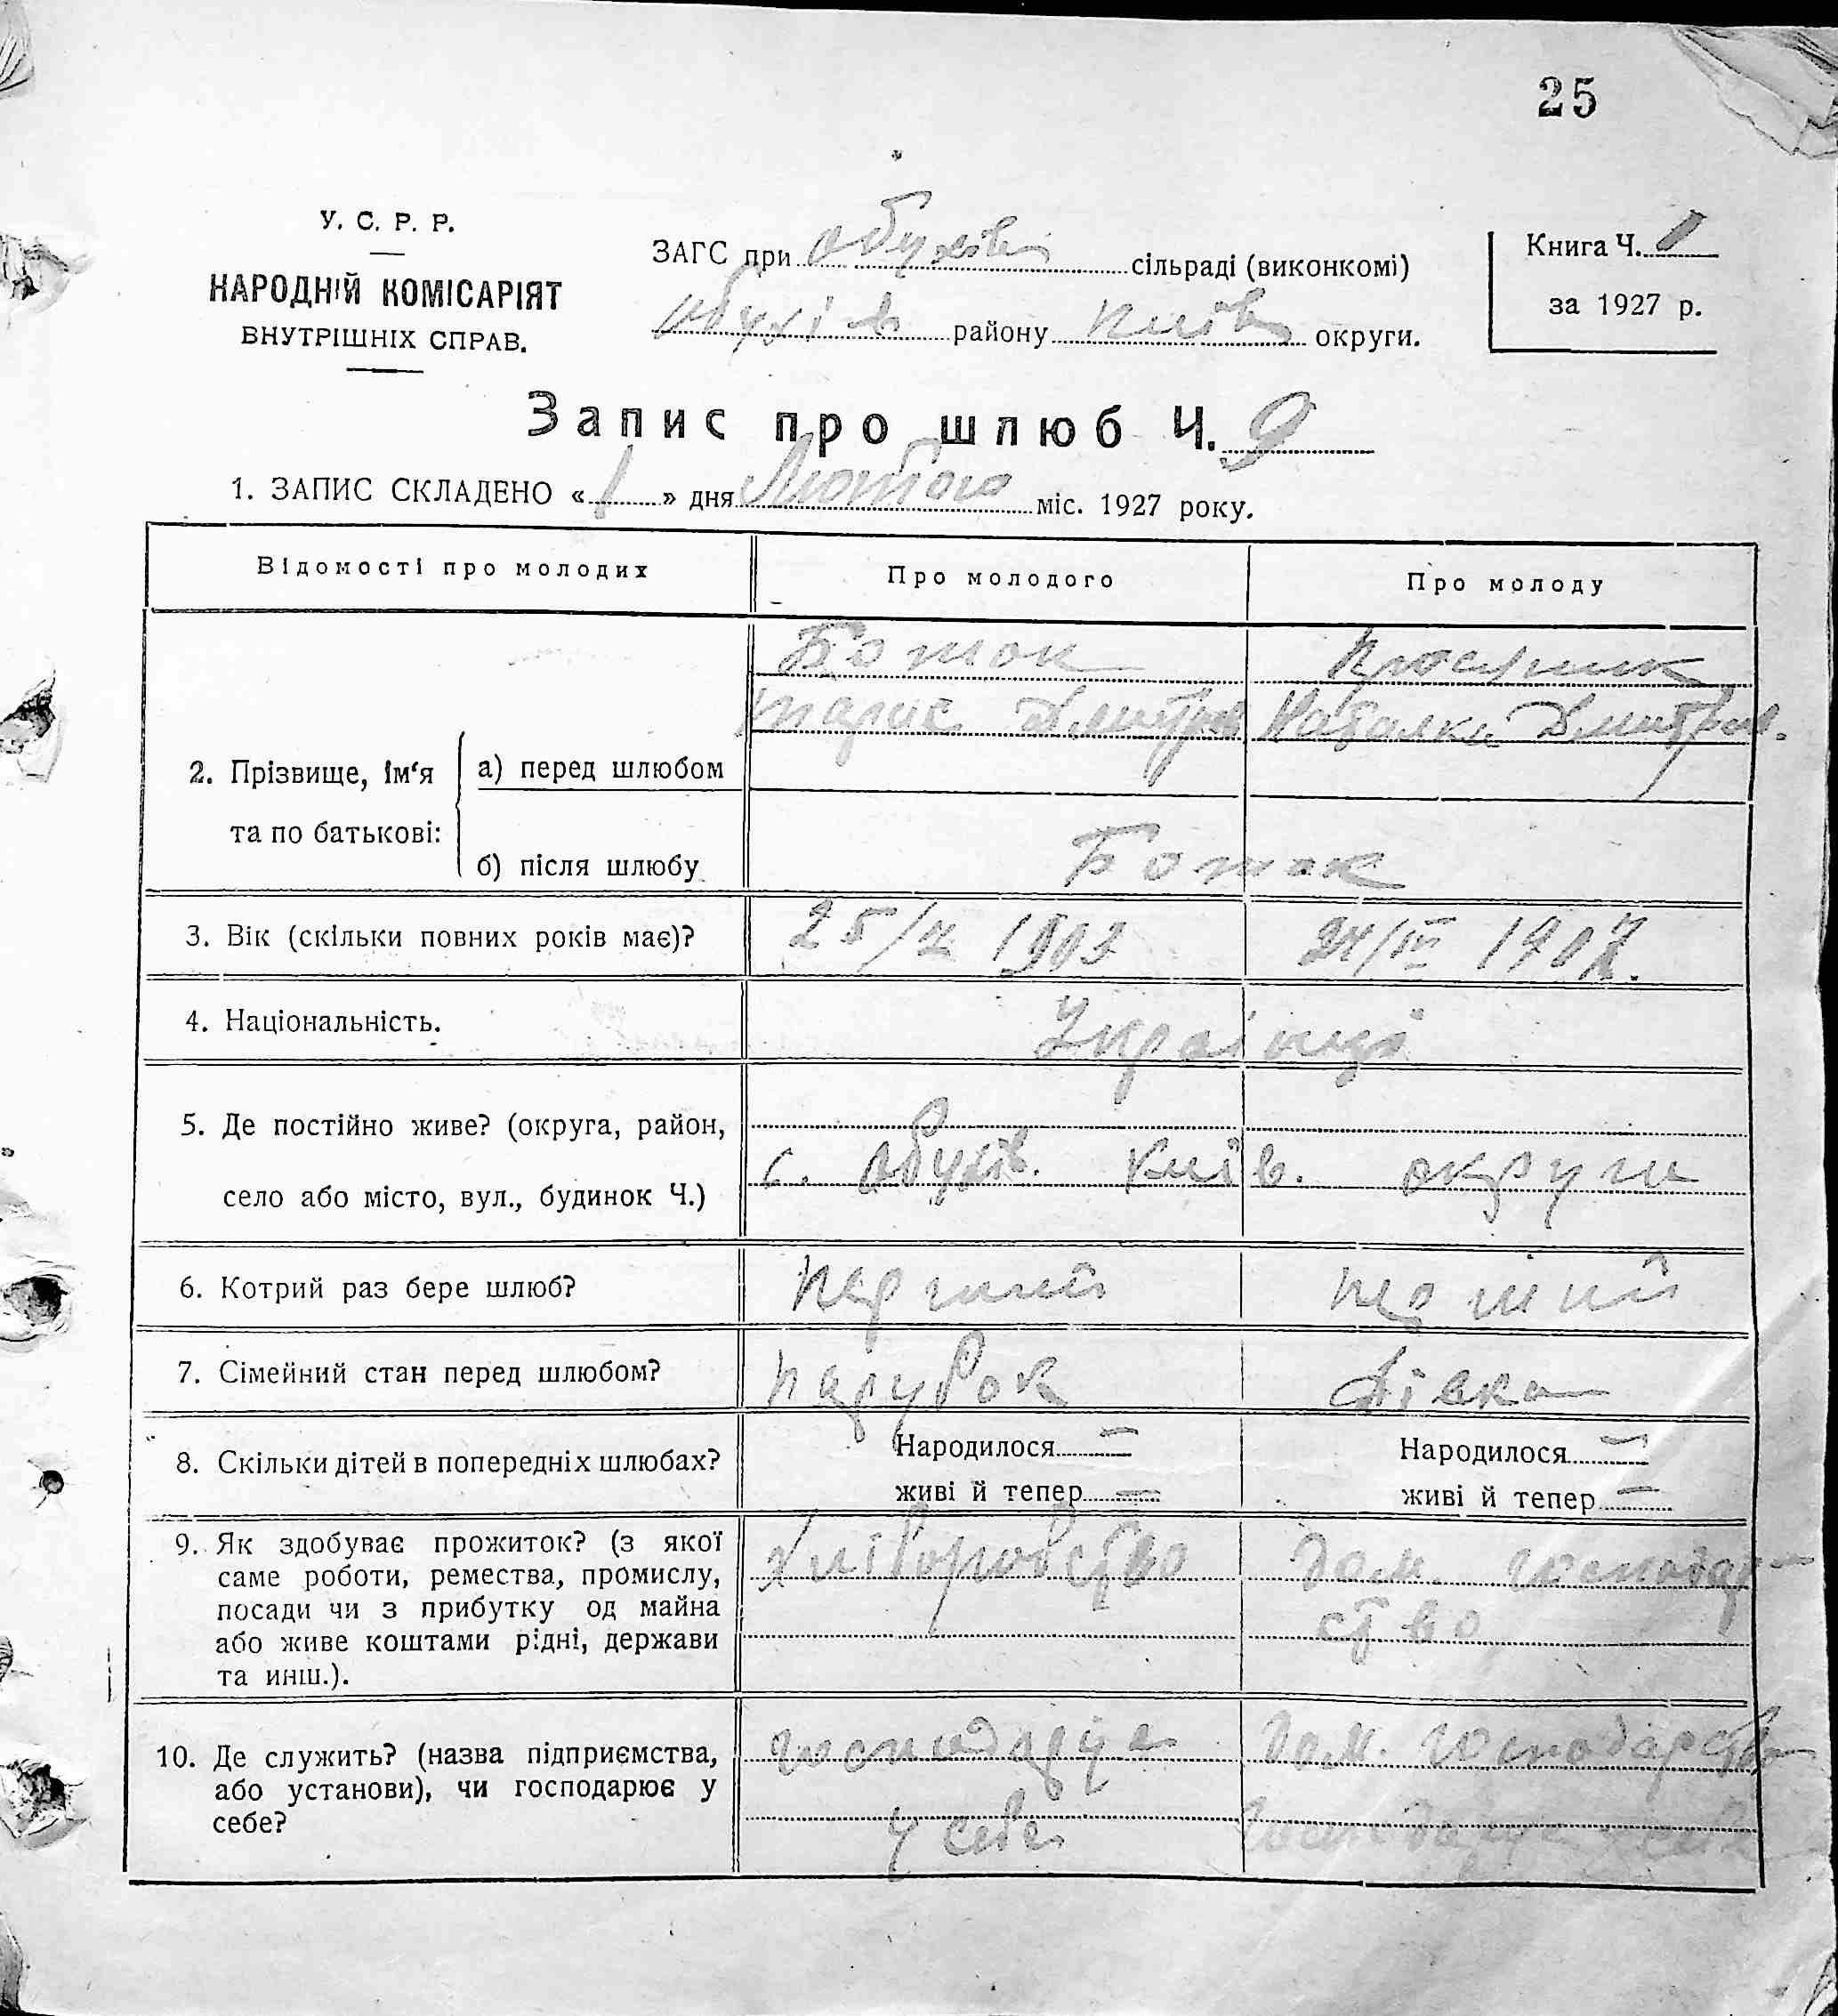 25
У. С. Р. Р.
НАРОДНІЙ КОМІСАРІЯТ
ВНУТРІШНІХ СПРАВ.
ЗАГС при Обухівс сільраді (виконкомі)
Обухів району Київ округи.
Книга Ч. 1
за 1927 р.
Запис про шлюб Ч. 9
1. ЗАПИС СКЛАДЕНО « 1 » дня Лютого міс. 1927 року.
Відомості про молодих Про молодого Про молоду
2. Прізвище, ім'я та по батькові:
а) перед шлюбом
Боток
Тарас Дмитров
Наталка Дмитров.
б) після шлюбу
Боток
3. Вік (скільки повних років має)? 25/ 1903 24/III 1907.
4. Національність. Українці
5. Де постійно живе? (округа, район,
село або місто, вул., будинок Ч.)
с. Обухів. Київ. округи
6. Котрий раз бере шлюб? перший перший
7. Сімейний стан перед шлюбом? парубок дівка
8. Скільки дітей в попередніх шлюбах? Народилося — Народилося —
живі й тепер — живі й тепер —
9. Як здобуває прожиток? (з якої
саме роботи, ремества, промислу,
посади чи з прибутку од майна
або живе коштами рідні, держави
та инш.).
Хліборобство
дом. господар-
ство
10. Де служить? (назва підприємства,
або установи), чи господарює у
себе?
господарує
у себе
дом. господарство
господарує у себе